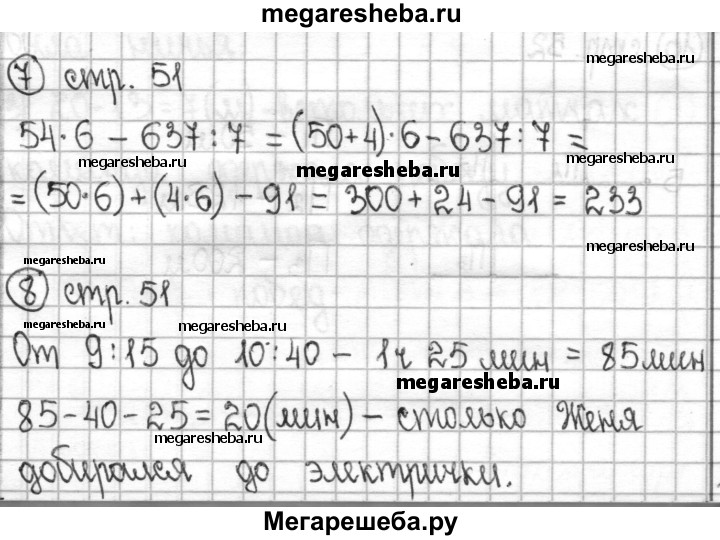 megaresheba.ru
7 стр. 51
megaresheba.ru
54·6 – 637:7 = (50+4)·6–637:7 =
megaresheba.ru megaresheba.ru megaresheba.ru
= (50·6)+(4·6) – 91 = 300+24–91 = 233
megaresheba.ru
megaresheba.ru
8 стр. 51
megaresheba.ru megaresheba.ru megaresheba.ru
От 9:15 до 10:40 – 1ч 25 мин = 85мин
megaresheba.ru
85–40–25=20(мин) – столько Женя
megaresheba.ru
добирался до электрички.
Мегарешеба.ру